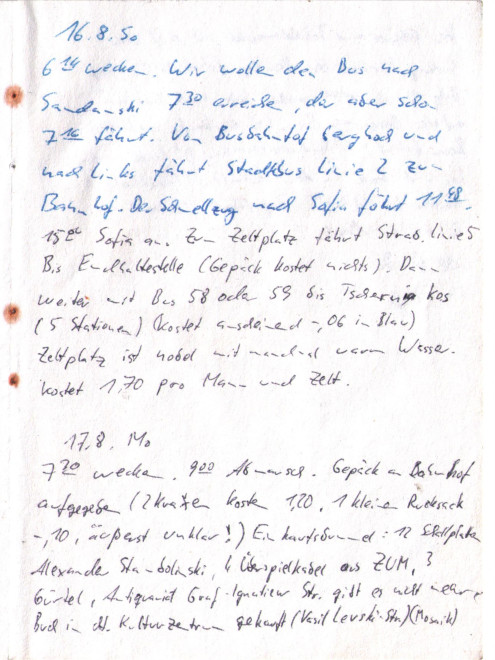 16.8. So
6 14 wecken. Wir wollen den Bus nach
Sandanski 7 30 erreichen, der aber schon
7 10 fährt. Vom Busbahnhof berghoch und
nach links fährt Stadtbus Linie 2 zum
Bahnhof. Der Schnellzug nach Sofia fährt 11 48.
15 Sofia an. Zum Zeltplatz fährt Straß. Linie 5
Bis Endhaltestelle (Gepäck kostet nichts). Dann
weiter mit Bus 58 oder 59 bis Tscherni Kos
(5 Stationen) (kostet anscheinend -,06 in Blau)
Zeltplatz ist nobel mit manchmal warm Wasser.
kostet 1,70 pro Mann und Zelt.
17.8. Mo
7 20 wecken. 9 00 Abmarsch. Gepäck am Bahnhof
aufgegeben (2 Kraxen kosten 1,20, 1 kleiner Rucksack
-,10, äußerst unklar!) Einkaufsbummel: 12 Schallplatten
Alexander Stambolinski, 4 Überspielkabel aus ZUM, 3
Gürtel, Antiquariat Graf-Ignatiew Str. gibt es nicht mehr
Buch im dt. Kulturzentrum gekauft (Vasil Levski-Str.) (Mosaik)